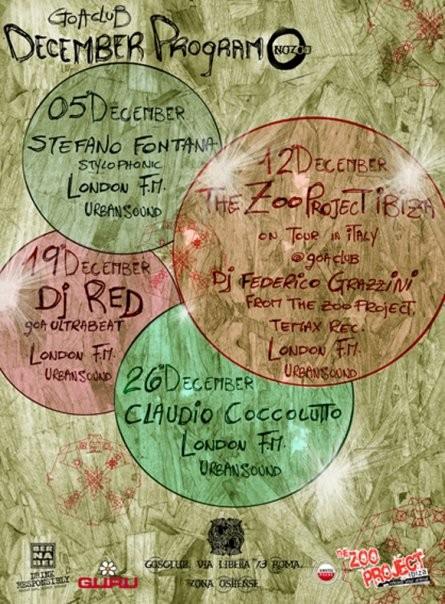 GOACLUB
DECEMBER PROGRAM
NOZOO
05° DECEMBER
STEFANO FONTANA
STYLOPHONIC
LONDON F.M.
URBANSOUND
12° DECEMBER
THE ZOO PROJECT IBIZA
ON TOUR IN ITALY
@ GOA CLUB
DJ FEDERICO GRAZZINI
FROM THE ZOO PROJECT,
TEMAX REC.
LONDON F.M.
URBANSOUND
19° DECEMBER
DJ RED
GOA ULTRABEAT
LONDON F.M.
URBANSOUND
26° DECEMBER
CLAUDIO COCCOLUTO
LONDON F.M.
URBANSOUND
BERNABEI
DRINK RESPONSIBLY
GURU
GOACLUB, VIA LIBETTA 13 ROMA
ZONA OSTIENSE
THE ZOO PROJECT
ibiza